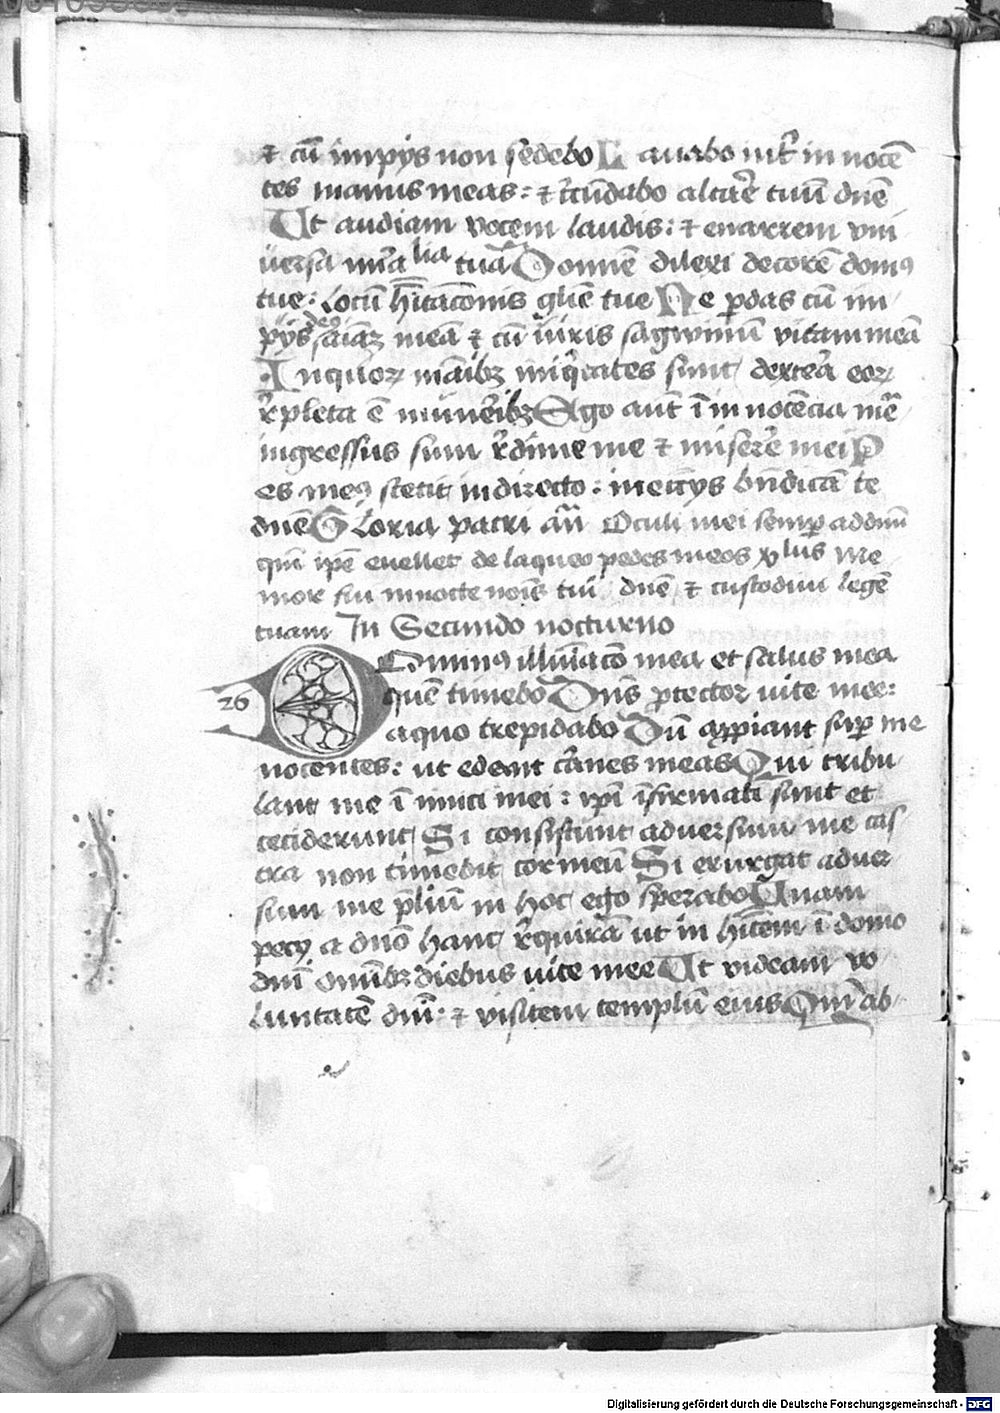 ⁊ cu̅ impijs non sedebo Lavabo int̉ in nocē
tes manus meas: ⁊ c̉cu̅dabo altar̉e tuu̅ dn̄e
Ut audiam vocem laudis: ⁊ enarrem vni
uersa mir̉a lia tua Domine dilexi decorē domꝰ
tue: locu̅ hītac̄onis gl̄ie tue Ne ꝑdas cu̅ im
pijs deꝰ aīaꝫ meā ⁊ cu̅ uiris sagwinu̅ vitam meā
In quoꝝ māibꝫ iniq̉tates sunt dextera eoꝝ
r̉pleta ē muner̉ibꝫ Ego aut̄ ī in nocēcia mea
ingressus sum r̉dime me ⁊ miserē mei P
es meꝰ stetit in directo: in ecc̄ijs bn̄dicā te
dn̄e Gloria patri an̄ Oculi mei semꝑ ad dnm̄
qm̄ ip̄e evellet de laqueo pedes meos v̉lus Me
mor fui in nocte nois̄ tui dn̄e ⁊ custodiui legē
tuam In Secundo nocturno
Dominꝰ illuīac̄o mea et salus mea
26 quē timebo Dn̄s ꝓtector uite mee:
a quo trepidabo Du̅ aꝓpiant suꝑ me
nocentes: ut edant car̉nes meas Qui tribu
lant me ī imici mei: ipi̅ īfirmati sunt et
ceciderunt Si consistunt aduersum me cas
tra non timebit cor meu̅ Si exurgat aduer
sum me p̄liu̅ in hoc ego sperabo Unam
pecij a dn̄o hanc r̉quirā ut in hītem ī domo
dni̅ omībꝫ diebus uite mee Ut videam vo
luntatē dni̅: ⁊ visitem templu̅ eius Qm̄ ab
Digitalisierung gefördert durch die Deutsche Forschungsgemeinschaft - DFG